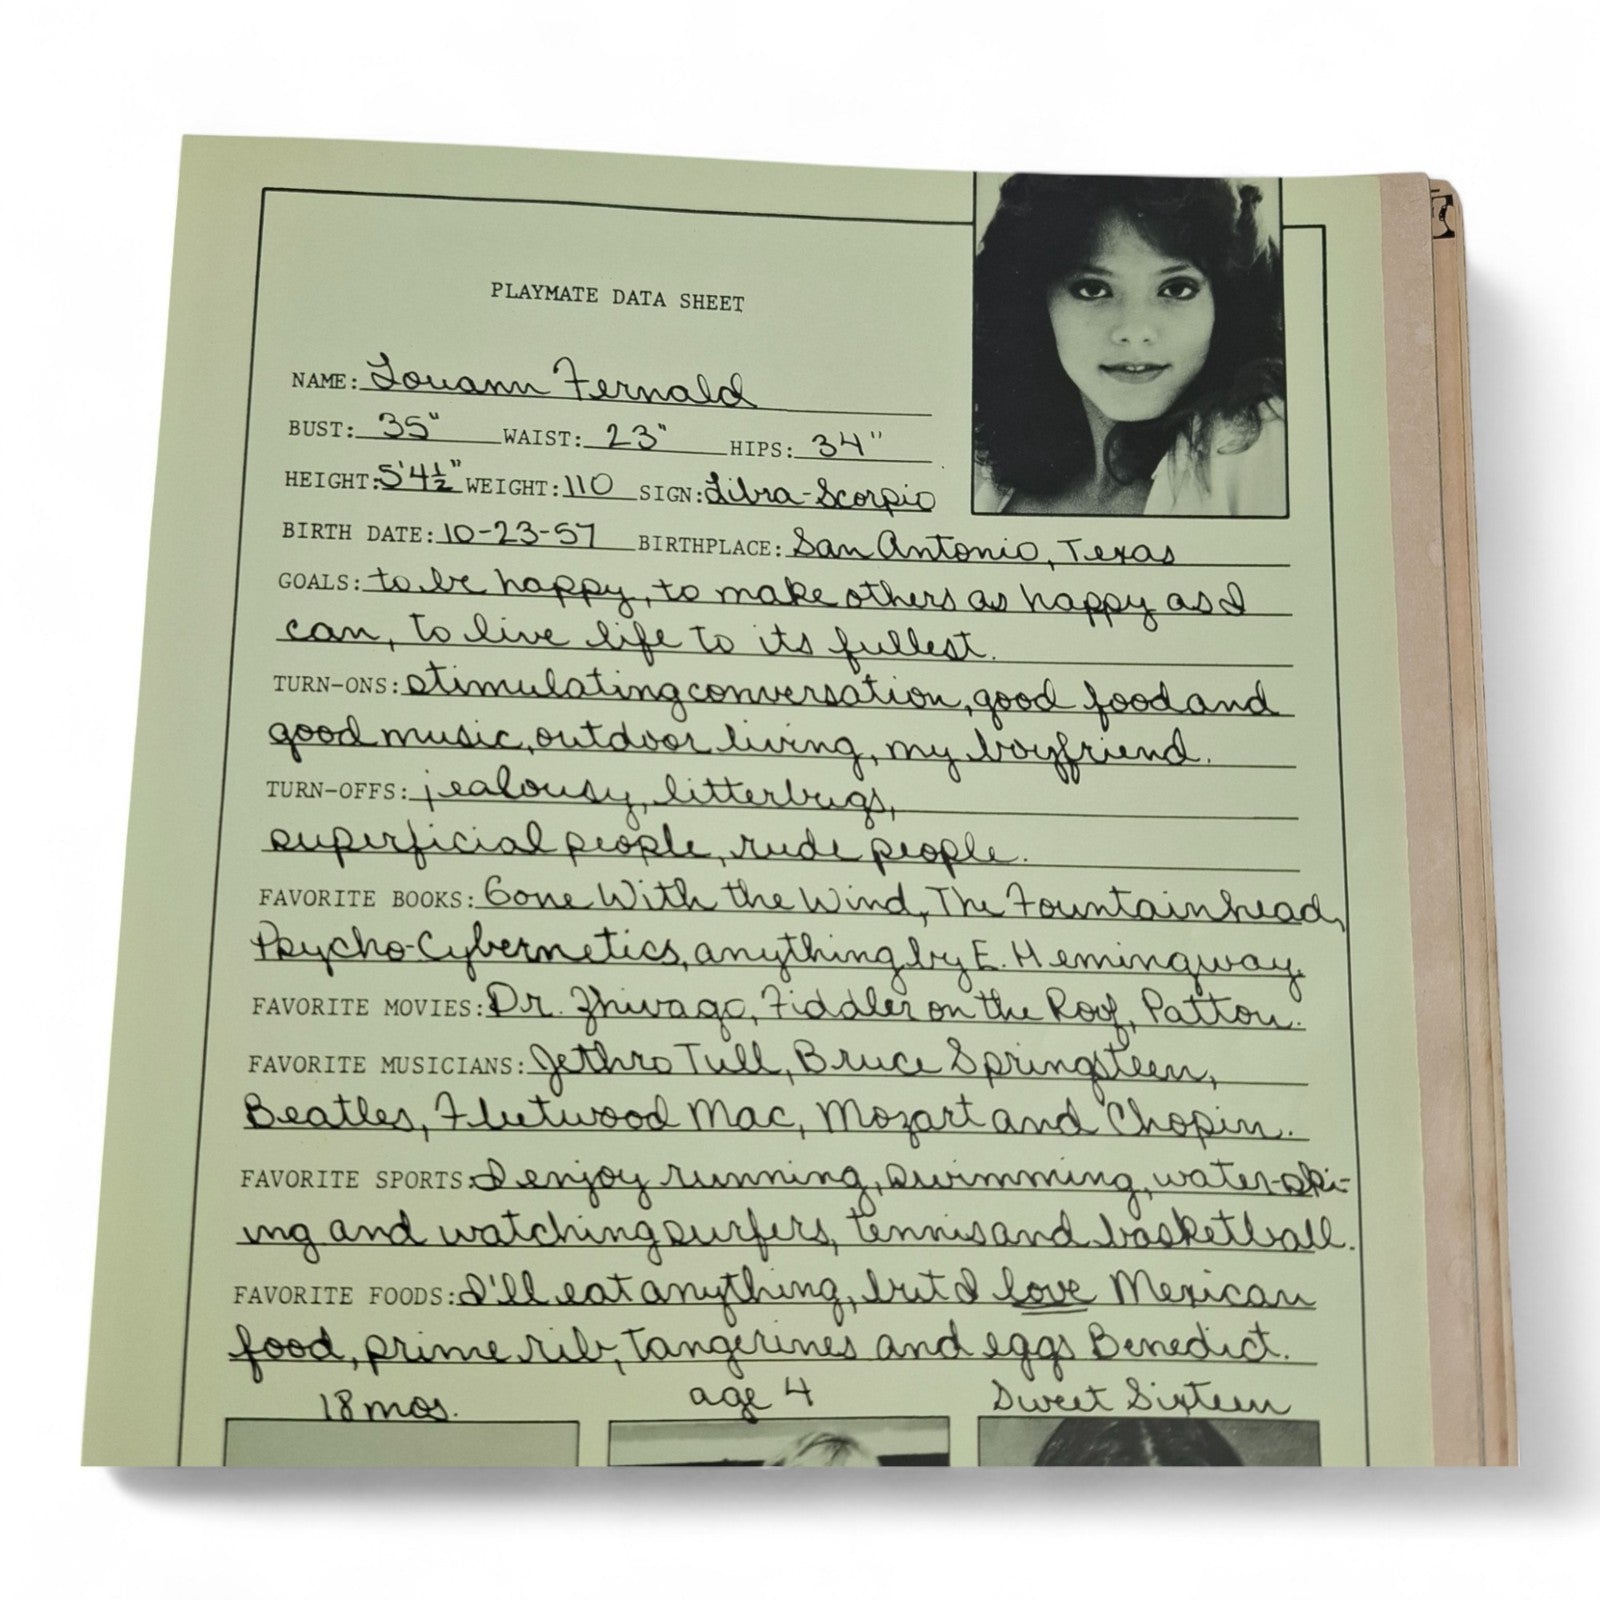 PLAYMATE DATA SHEET
NAME: Louann Fernald
BUST: 35" WAIST: 23" HIPS: 34"
HEIGHT: 5'4½" WEIGHT: 110 SIGN: Libra-Scorpio
BIRTH DATE: 10-23-57 BIRTHPLACE: San Antonio, Texas
GOALS: to be happy, to make others as happy as I
can, to live life to its fullest.
TURN-ONS: stimulating conversation, good food and
good music, outdoor living, my boyfriend.
TURN-OFFS: jealousy, litterbugs,
superficial people, rude people.
FAVORITE BOOKS: Gone With the Wind, The Fountainhead,
Psycho-Cybernetics, anything by E. Hemingway.
FAVORITE MOVIES: Dr. Zhivago, Fiddler on the Roof, Patton.
FAVORITE MUSICIANS: Jethro Tull, Bruce Springsteen,
Beatles, Fleetwood Mac, Mozart and Chopin.
FAVORITE SPORTS: I enjoy running, swimming, water-ski-
ing and watching surfers, tennis and basketball.
FAVORITE FOODS: I'll eat anything, but I love Mexican
food, prime rib, tangerines and eggs Benedict.
18 mos. age 4 Sweet Sixteen